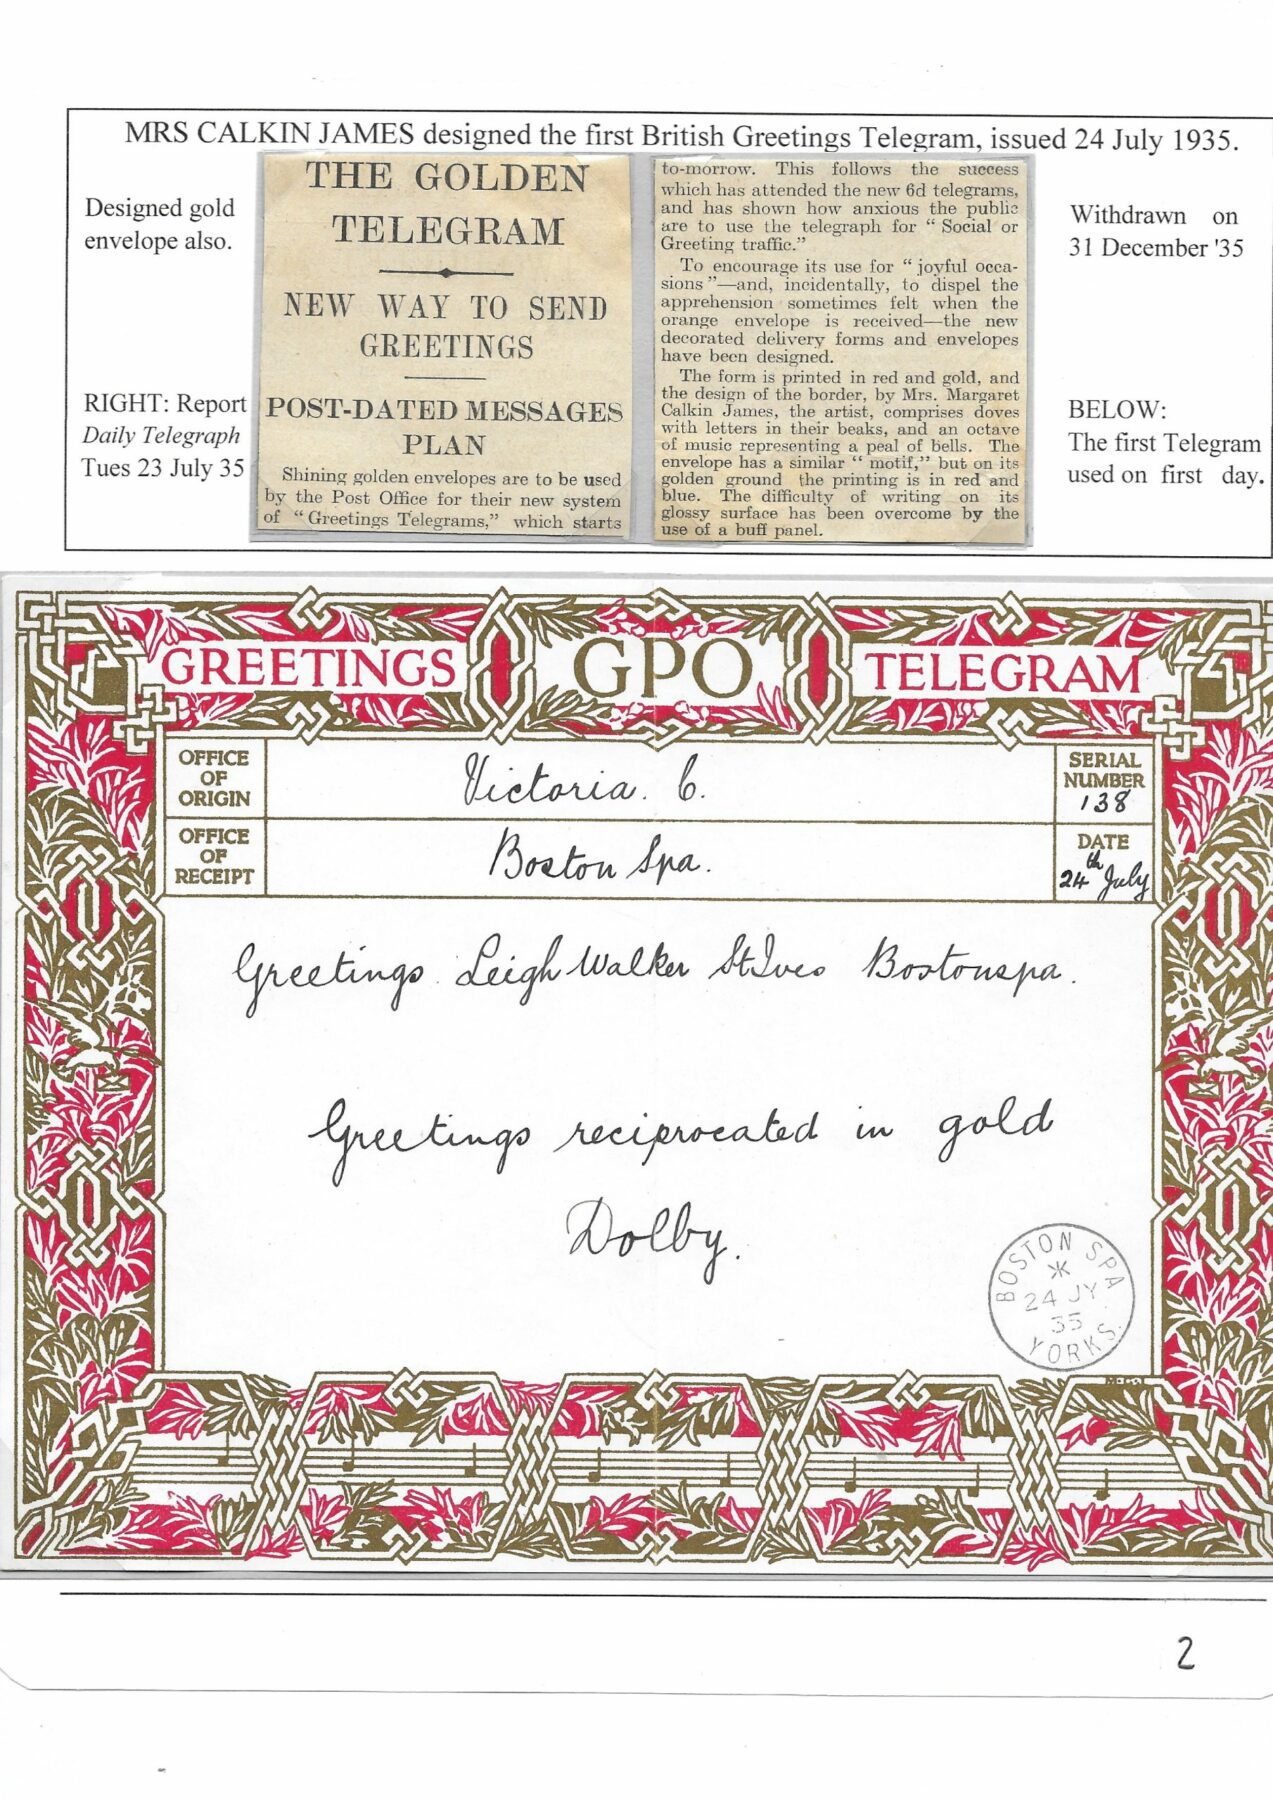 MRS CALKIN JAMES designed the first British Greetings Telegram, issued 24 July 1935.
Designed gold
envelope also.
RIGHT: Report
Daily Telegraph
Tues 23 July 35
THE GOLDEN
TELEGRAM
NEW WAY TO SEND
GREETINGS
POST-DATED MESSAGES
PLAN
Shining golden envelopes are to be used
by the Post Office for their new system
of "Greetings Telegrams," which starts
to-morrow. This follows the success
which has attended the new 6d telegrams,
and has shown how anxious the public
are to use the telegraph for "Social or
Greeting traffic."
To encourage its use for "joyful occa-
sions"—and, incidentally, to dispel the
apprehension sometimes felt when the
orange envelope is received—the new
decorated delivery forms and envelopes
have been designed.
The form is printed in red and gold, and
the design of the border, by Mrs. Margaret
Calkin James, the artist, comprises doves
with letters in their beaks, and an octave
of music representing a peal of bells. The
envelope has a similar "motif," but on its
golden ground the printing is in red and
blue. The difficulty of writing on its
glossy surface has been overcome by the
use of a buff panel.
Withdrawn on
31 December '35
BELOW:
The first Telegram
used on first day.
GREETINGS GPO TELEGRAM
OFFICE
OF
ORIGIN
Victoria. C.
SERIAL
NUMBER
138
OFFICE
OF
RECEIPT
Boston Spa.
DATE
24th July
Greetings Leigh Walker St Ives Bostonspa.
Greetings reciprocated in gold
Dolby.
BOSTON SPA
24 JY
35
YORKS.
M.C.J
2